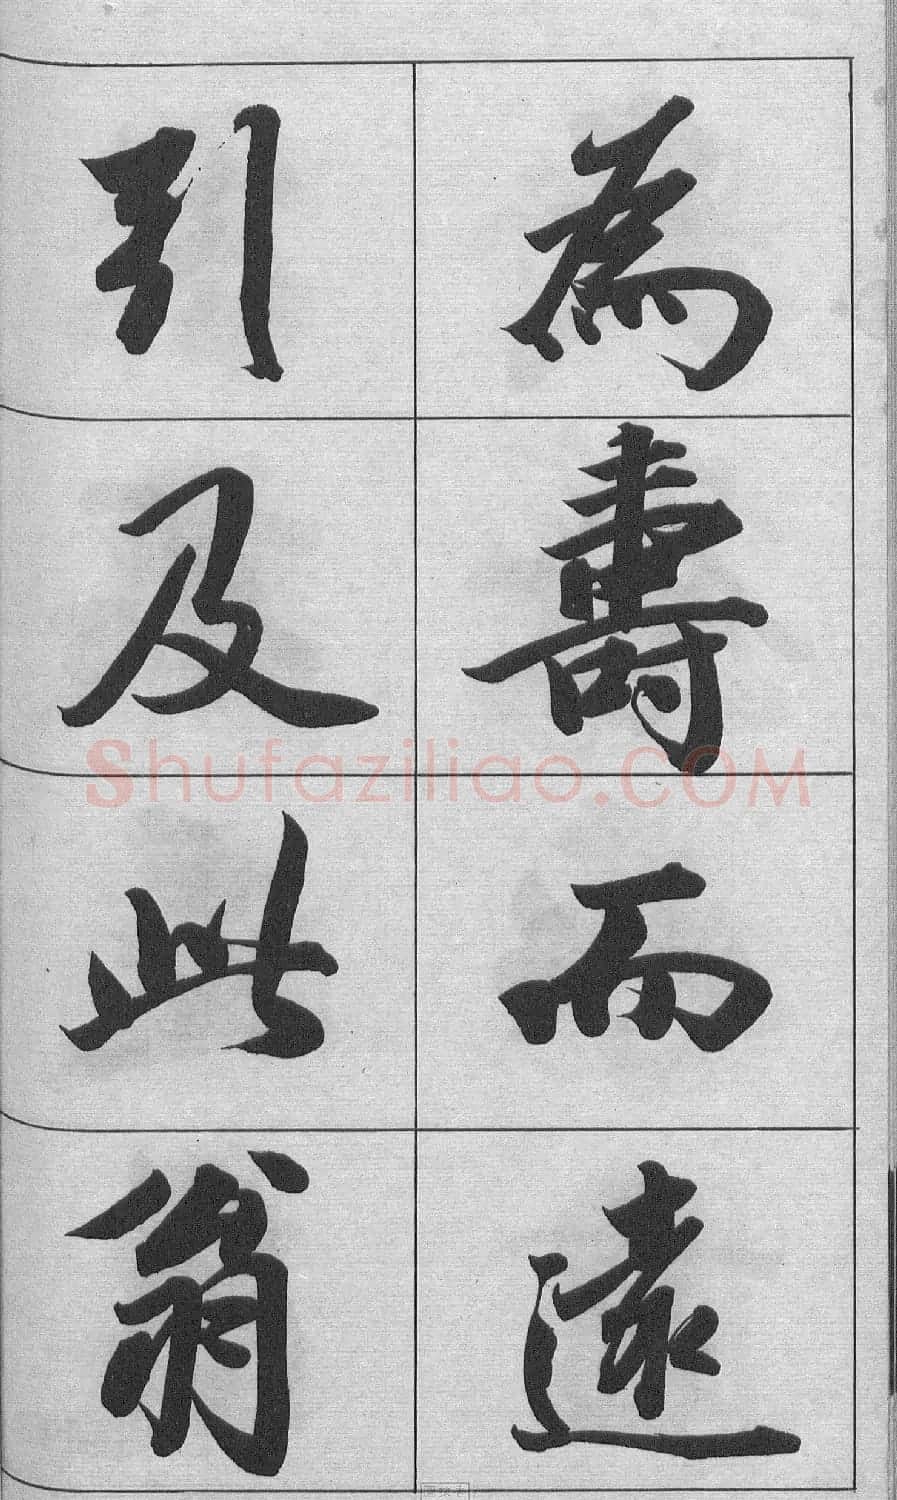 為壽而遠
引及此翁
Shufaziliao.COM